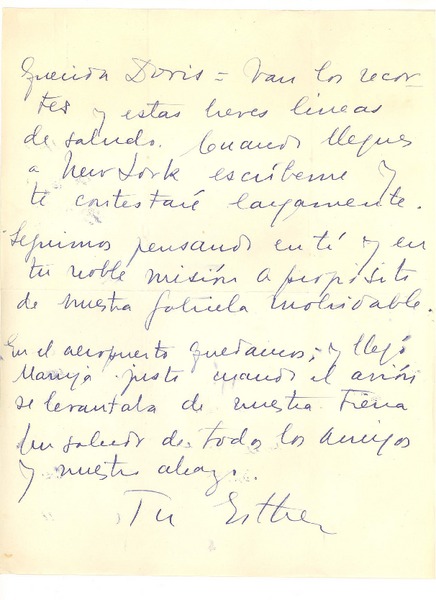 Querida Doris = Van los recor-
tes y estas breves lineas
de saludo. Cuando llegues
a New York escríbeme y
te contestaré largamente.
Seguimos pensando en tí y en
tu noble misión a propósito
de nuestra Gabriela inolvidable.
En el aeropuerto quedamos, y llegó
Maruja justo cuando el avión
se levantaba de nuestra tierra
Un saludo de todos los amigos
y nuestro abrazo.
Tu Esther